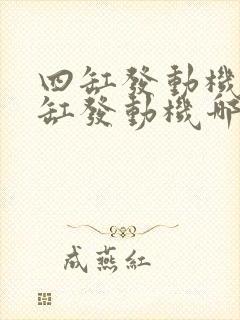 四缸發動機
缸發動機哪
成燕紅